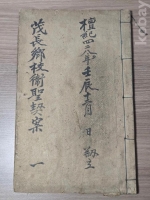 檀紀四二八五年壬辰十二月 日 刱立
茂長鄉校衛聖契案 一